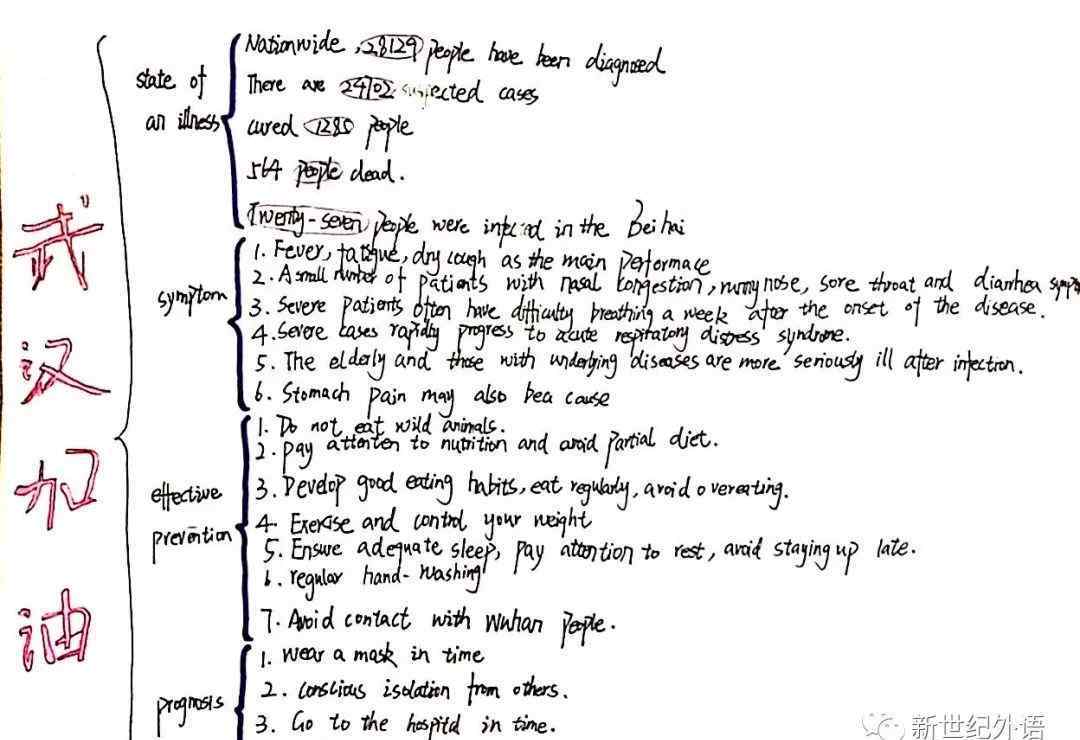 武汉加油
state of an illness
Nationwide, 28129 people have been diagnosed
There are 24702 suspected cases
cured 1280 people
564 people dead.
Twenty-seven people were infected in the Beihai
symptom
1. Fever, fatigue, dry cough as the main performace
2. A small number of patients with nasal congestion, runny nose, sore throat and diarrhea symp
3. Severe patients often have difficulty breathing a week after the onset of the disease.
4. Severe cases rapidly progress to acute respiratory distress syndrome.
5. The elderly and those with underlying diseases are more seriously ill after infection.
6. Stomach pain may also be a cause
effective prevention
1. Do not eat wild animals.
2. pay attenten to nutrition and avoid partial diet.
3. Develop good eating habits, eat regularly, avoid overeating.
4. Exercise and control your weight
5. Ensure adequate sleep, pay attention to rest, avoid staying up late.
6. regular hand-washing
7. Avoid contact with Wuhan people.
prognosis
1. wear a mask in time
2. conscious isolation from others.
3. Go to the hospital in time.
新世纪外语